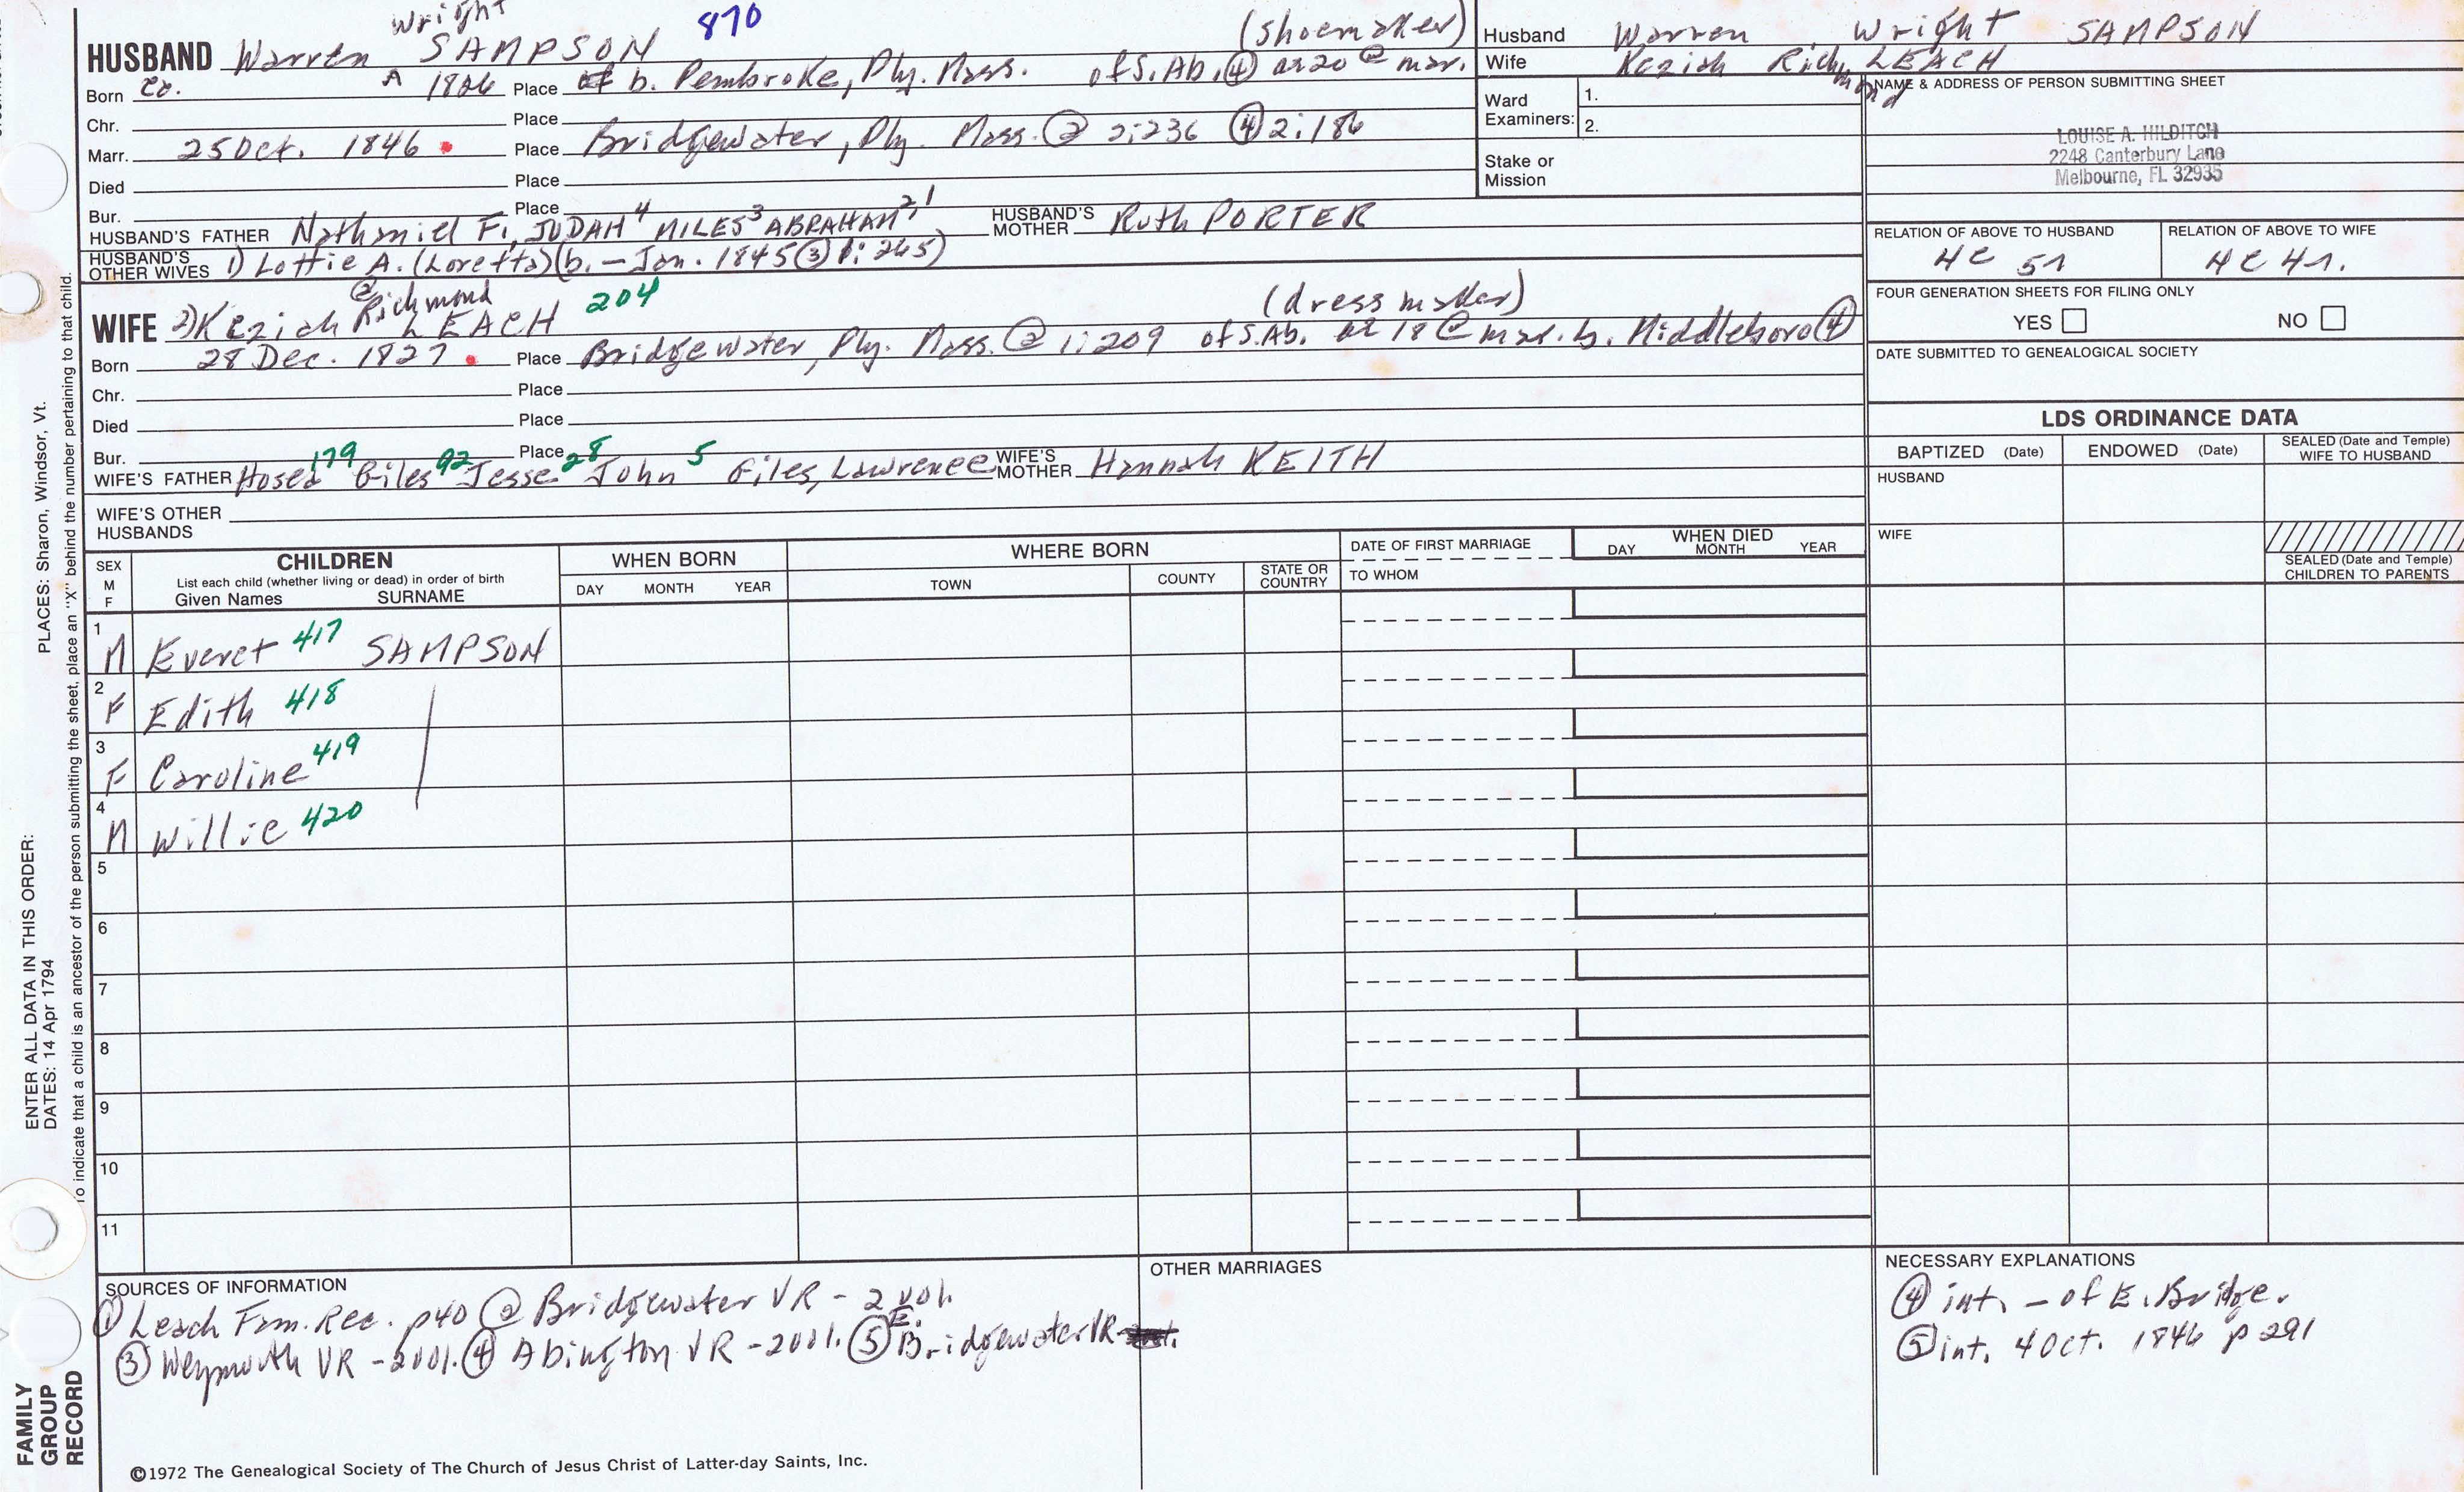 Wright 870 (shoemaker)
HUSBAND Warren SAMPSON
Born ca. 1826 Place b. Pembroke, Ply. Mass. of S. Ab. ④ ae 20 @ mar.
Chr. Place
Marr. 25 Oct. 1846 Place Bridgewater, Ply. Mass. ② 2:236 ④ 2:186
Died Place
Bur. Place
HUSBAND'S FATHER Nathaniel F., JUDAH 4 MILES 3 ABRAHAM 2,1 HUSBAND'S MOTHER Ruth PORTER
HUSBAND'S OTHER WIVES 1) Lottie A. (Loretta) (b. — Jan. 1845 ③ 1:265)
② Richmond 204 (dress maker)
WIFE 2) Keziah LEACH
Born 28 Dec. 1827 Place Bridgewater, Ply. Mass. ② 1:209 of S. Ab. ae 18 @ mar. b. Middleboro ④
Chr. Place
Died Place
Bur. Place
179 92 28 5
WIFE'S FATHER Hosea Giles Jesse John Giles, Lawrence WIFE'S MOTHER Hannah KEITH
WIFE'S OTHER HUSBANDS
Husband Warren Wright SAMPSON
Wife Keziah Richmond LEACH
Ward Examiners: 1.
2.
Stake or Mission
NAME & ADDRESS OF PERSON SUBMITTING SHEET
LOUISE A. HILDITCH
2248 Canterbury Lane
Melbourne, FL 32935
RELATION OF ABOVE TO HUSBAND RELATION OF ABOVE TO WIFE
4C 5r 4C 4r.
FOUR GENERATION SHEETS FOR FILING ONLY
YES NO
DATE SUBMITTED TO GENEALOGICAL SOCIETY
LDS ORDINANCE DATA
BAPTIZED (Date) ENDOWED (Date) SEALED (Date and Temple) WIFE TO HUSBAND
HUSBAND
WIFE
SEALED (Date and Temple) CHILDREN TO PARENTS
SEX M F CHILDREN List each child (whether living or dead) in order of birth Given Names SURNAME
WHEN BORN DAY MONTH YEAR
WHERE BORN TOWN COUNTY STATE OR COUNTRY
DATE OF FIRST MARRIAGE TO WHOM
WHEN DIED DAY MONTH YEAR
1 M Everet 417 SAMPSON
2 F Edith 418
3 F Caroline 419
4 M Willie 420
5
6
7
8
9
10
11
SOURCES OF INFORMATION
① Leach Fam. Rec. p40 ② Bridgewater VR - 2 vol.
③ Weymouth VR - 2 vol. ④ Abington VR - 2 vol. ⑤ E. Bridgewater VR
OTHER MARRIAGES
NECESSARY EXPLANATIONS
④ int. - of E. Bridge.
⑤ int. 4 Oct. 1846 p 291
©1972 The Genealogical Society of The Church of Jesus Christ of Latter-day Saints, Inc.
FAMILY GROUP RECORD
ENTER ALL DATA IN THIS ORDER:
DATES: 14 Apr 1794
PLACES: Sharon, Windsor, Vt.
To indicate that a child is an ancestor of the person submitting the sheet, place an "X" behind the number pertaining to that child.